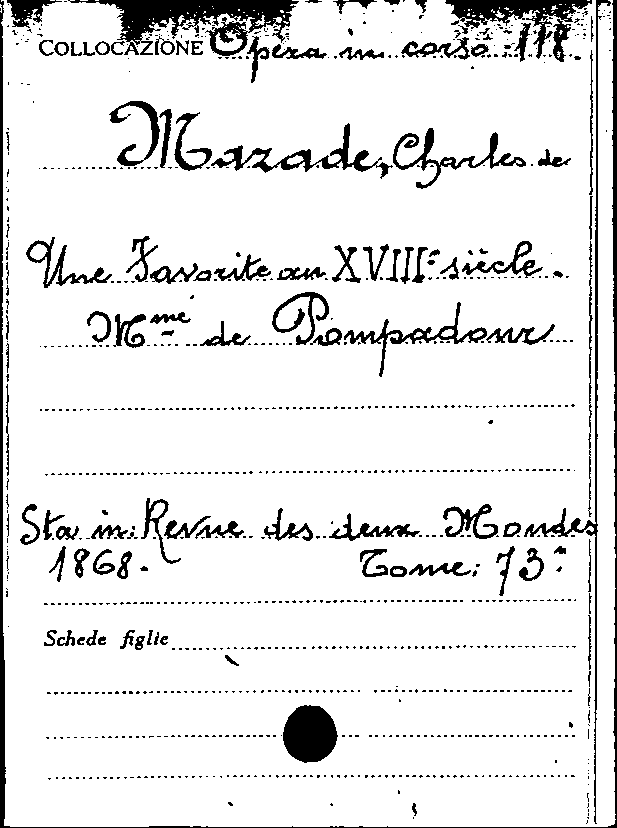 COLLOCAZIONE Opera in corso 118.
Mazade, Charles de
Une Favorite au XVIIIe siècle.
Mme de Pompadour
Sta in: Revue des deux Mondes
1868. Tome: 73°
Schede figlie